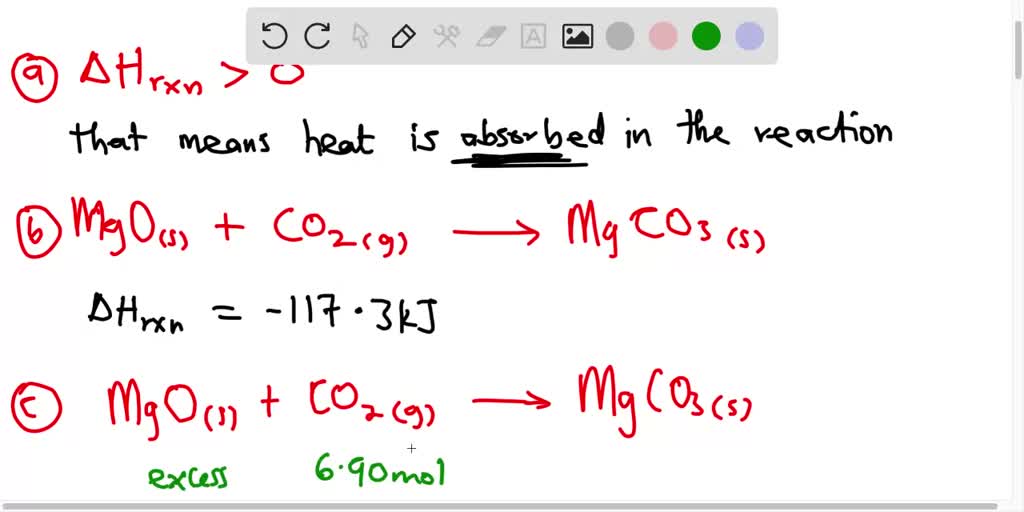 ⓐ ΔHrxn > 0
that means heat is absorbed in the reaction
ⓑ MgO(s) + CO2(g) → MgCO3(s)
ΔHrxn = -117.3kJ
ⓒ MgO(s) + CO2(g) → MgCO3(s)
excess 6.90mol